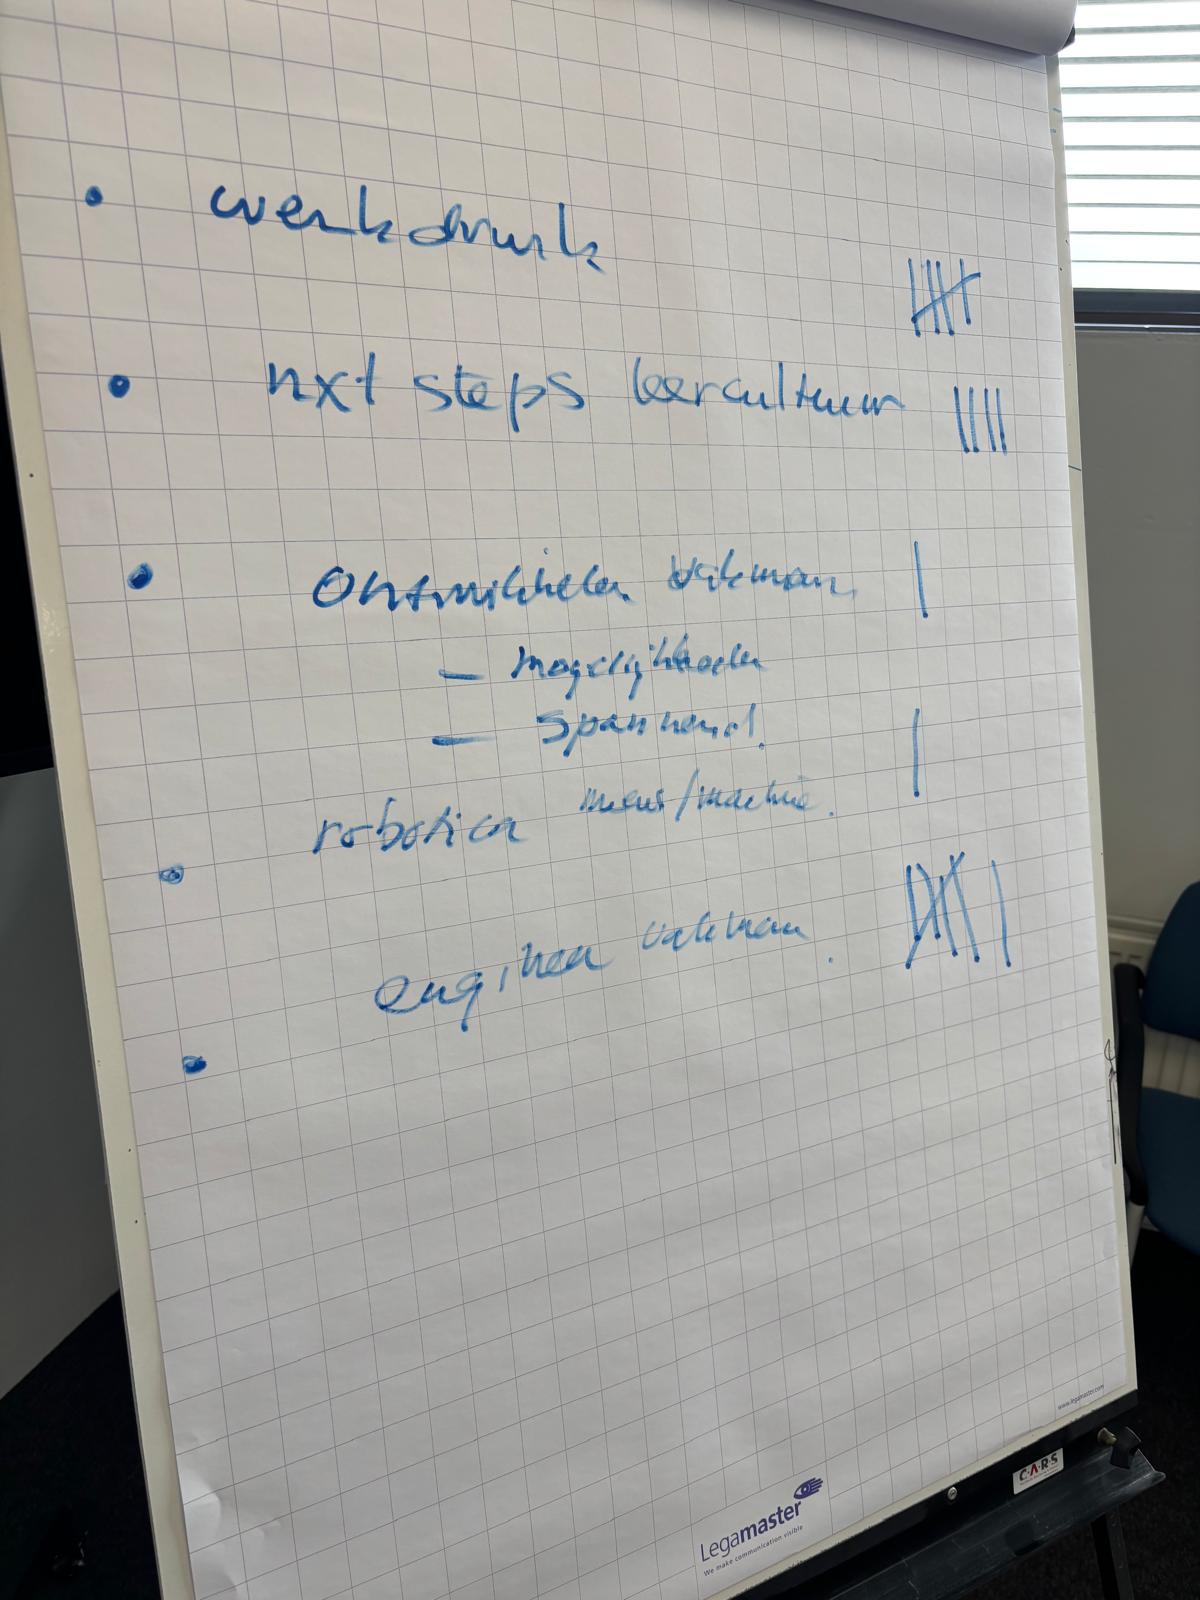 • werkdruk
• nxt steps leercultuur
• Ontwikkelen vakman
– mogelijkheden
– spannend.
• robotica mens/machine.
engineer vakman.
•
www.legamaster.com
C.A.R.S
Legamaster
We make communication visible